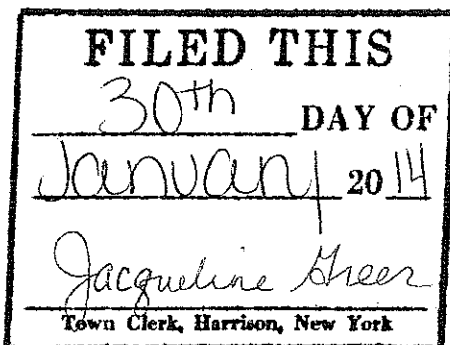 FILED THIS
30th DAY OF
January 20 14
Jacqueline Greer
Town Clerk, Harrison, New York